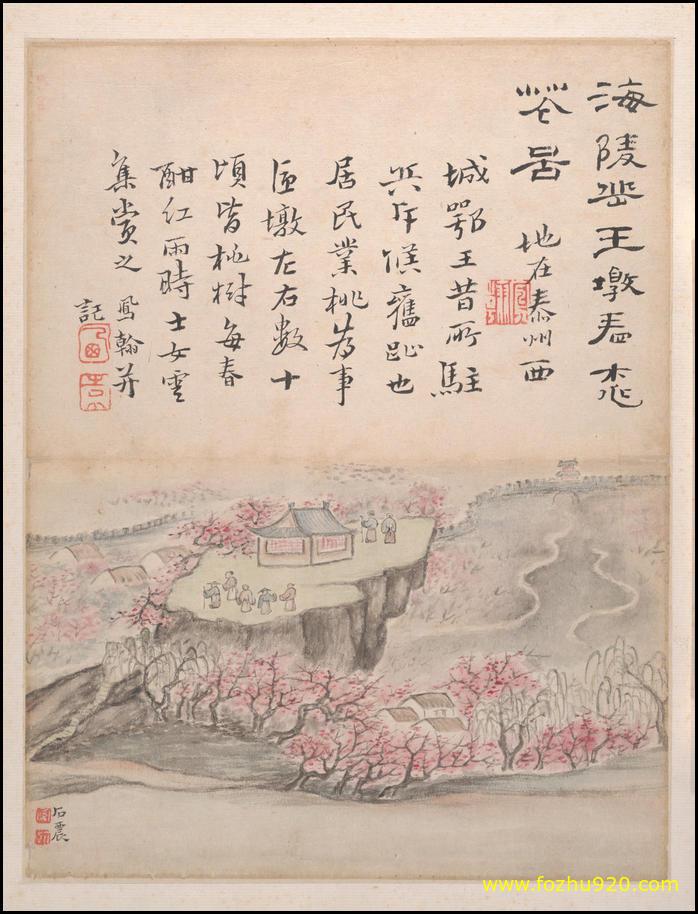 海陵岳王墩看桃
花啚 地在泰州西
城鄂王昔所駐
兵斥候舊趾也
居民業桃為事
墩左右數十
頃皆桃樹每春
酣紅雨時士女雲
集賞之 鳳翰并
記
石震
www.fozhu920.com